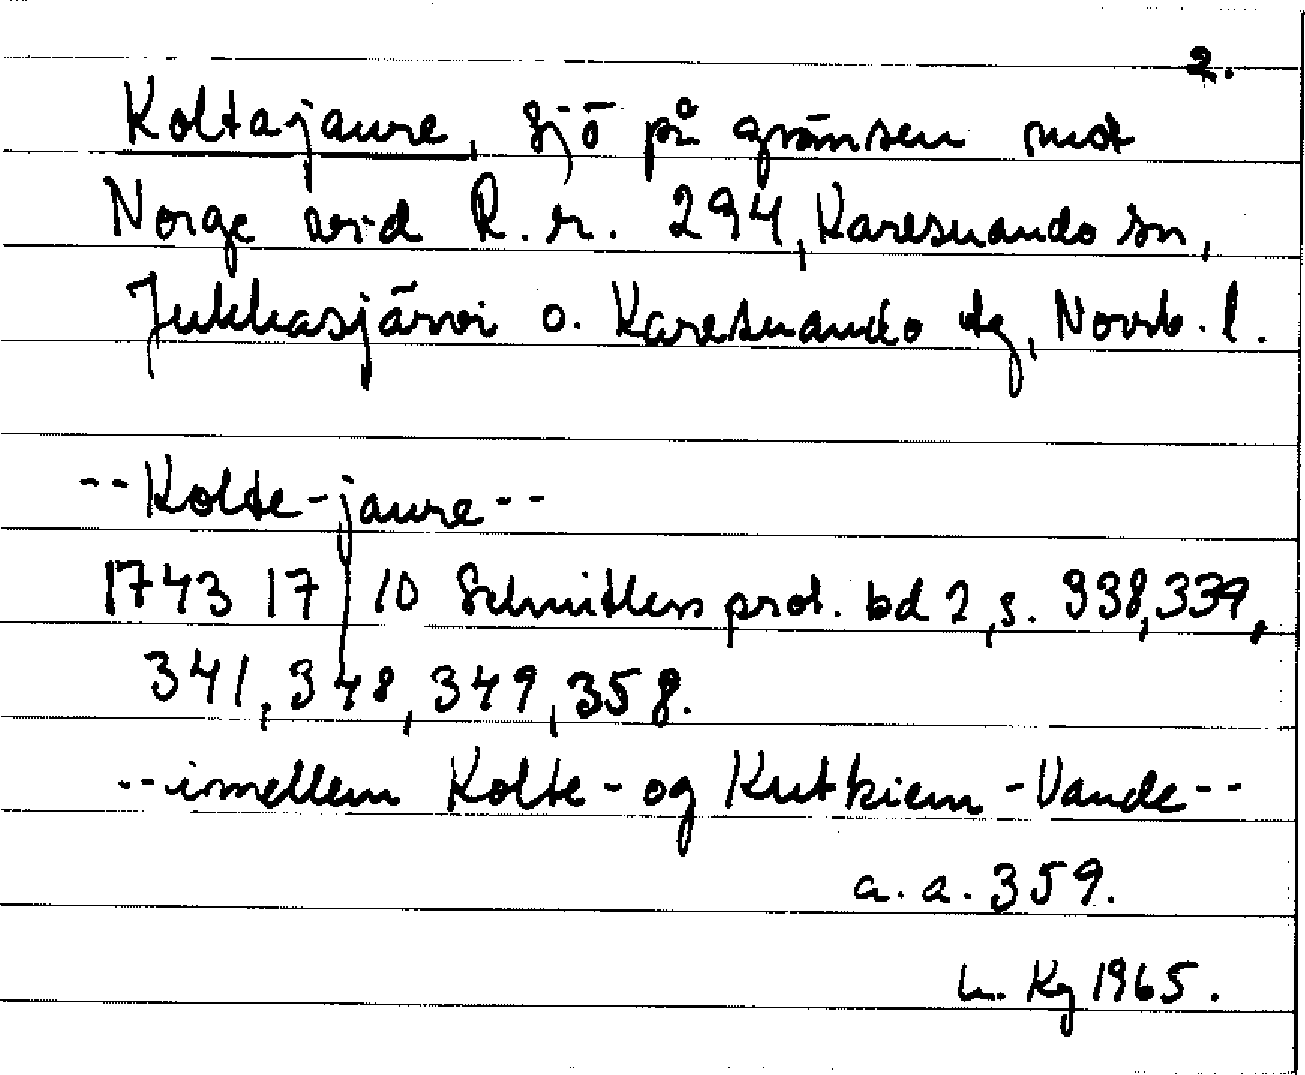 2.
Koltajaure, sjö på gränsen mot
Norge vid R.r. 294, Karesuando sn,
Jukkasjärvi o. Karesuando tg, Norrb. l.
--Kolte-jaure--
1743 17/10 Schnitlers prot. bd 2, s. 338, 339,
341, 348, 349, 358.
--imellem Kolte- og Kutkiem-Vande--
a.a. 359.
Kg 1965.